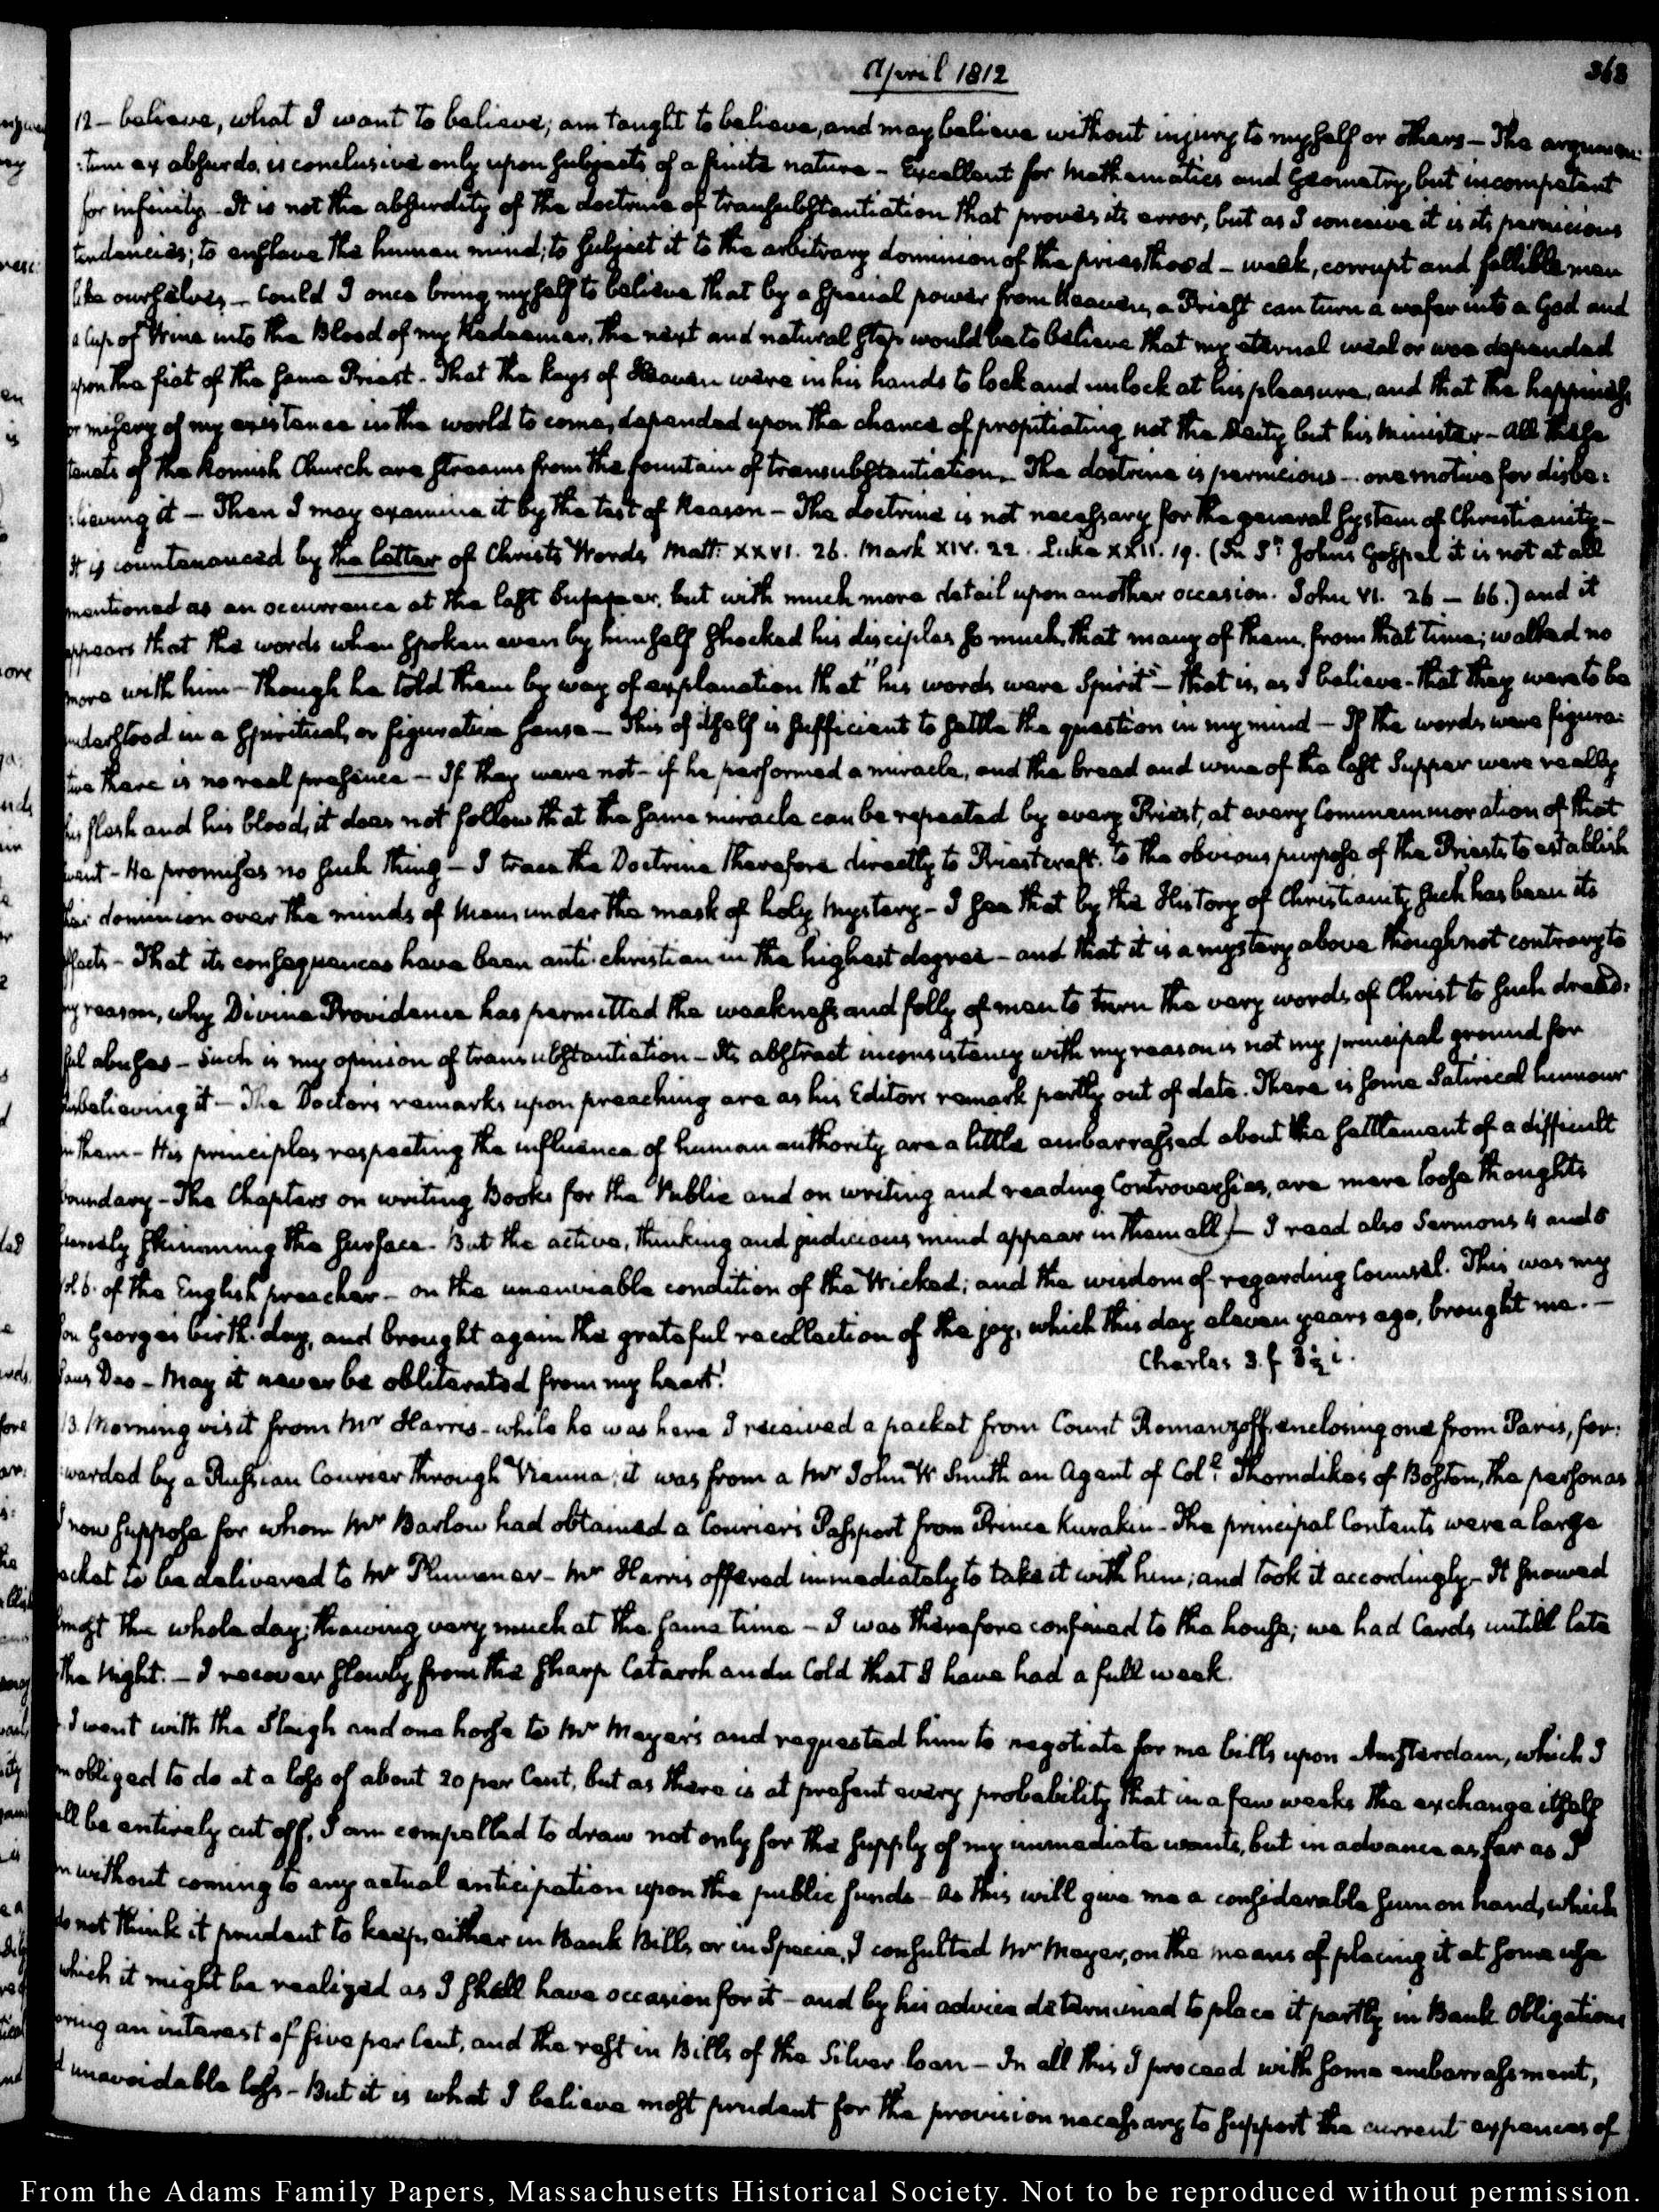 April 1812
368
12 – believe, what I want to believe; am taught to believe, and may believe without injury to myself or others – The argumen:
:tum ex absurdo, is conclusive only upon subjects of a finite nature – Excellent for Mathematics and Geometry, but incompetent
for infinity – It is not the absurdity of the doctrine of transubstantiation that proves its error, but as I conceive it is its pernicious
tendencies; to enslave the human mind; to subject it to the arbitrary dominion of the priesthood – weak, corrupt and fallible men
like ourselves – Could I once bring myself to believe that by a special power from Heaven, a Priest can turn a wafer into a God and
a Cup of Wine into the Blood of my Redeemer, the next and natural step would be to believe that my eternal weal or woe depended
upon the fiat of the same Priest – That the keys of Heaven were in his hands to lock and unlock at his pleasure, and that the happiness
or misery of my existence in the world to come, depended upon the chance of propitiating not the Deity but his Minister – All these
tenets of the Romish Church are streams from the fountain of transubstantiation – The doctrine is pernicious – one motive for disbe:
:lieving it – Then I may examine it by the test of Reason – The doctrine is not necessary for the general system of Christianity –
It is countenanced by the letter of Christ's Words Matt: XXVI. 26. Mark XIV. 22. Luke XXII. 19. (In St. Johns Gospel it is not at all
mentioned as an occurrence at the last Supper, but with much more detail upon another occasion. John VI. 26 – 66.) and it
appears that the words when spoken even by himself shocked his disciples so much, that many of them, from that time, walked no
more with him – Though he told them by way of explanation that "his words were Spirit" – that is, as I believe – that they were to be
understood in a spiritual, or figurative sense – This of itself is sufficient to settle the question in my mind – If the words were figura:
tive there is no real presence – If they were not – if he performed a miracle, and the bread and wine of the last Supper were really
his flesh and his blood, it does not follow that the same miracle can be repeated by every Priest, at every Commemmoration of that
event – He promises no such thing – I trace the Doctrine therefore directly to Priestcraft. To the obvious purpose of the Priests to establish
their dominion over the minds of Men, under the mask of holy Mystery – I see that by the History of Christianity such has been its
effects – That its consequences have been anti-christian in the highest degree – and that it is a mystery above though not contrary to
my reason, why Divine Providence has permitted the weakness and folly of men to turn the very words of Christ to such dread:
ful abuses – Such is my opinion of transubstantiation – Its abstract inconsistency with my reason is not my principal ground for
disbelieving it – The Doctors remarks upon preaching are as his Editors remark partly out of date. There is some Satirical humour
in them – His principles respecting the influence of human authority are a little embarrassed about the settlement of a difficult
boundary – The Chapters on writing Books for the Public and on writing and reading Controversies, are mere loose thoughts
skimming the surface – But the active, thinking and judicious mind appear in them all) – I read also Sermons 4 and 5
Vol 6. of the English preacher – on the unenviable condition of the Wicked; and the wisdom of regarding Counsel. This was my
son George's birth-day, and brought again the grateful recollection of the joy, which this day eleven years ago, brought me. –
Laus Deo – May it never be obliterated from my heart!
Charles 3.f
13. Morning visit from Mr Harris – while he was here I received a packet from Count Romanzoff, enclosing one from Paris, for:
:warded by a Russian Courier through Vienna; it was from a Mr John W Smith an Agent of Coll. Thorndikes of Boston, the person as
I now suppose for whom Mr Barlow had obtained a Courier's Passport from Prince Kurakin – The principal Contents were a large
packet to be delivered to Mr Plummer – Mr Harris offered immediately to take it with him; and took it accordingly – It snowed
almost the whole day; thawing very much at the same time – I was therefore confined to the house; we had Cards, untill late
the Night. – I recover slowly from the sharp Catarrh and Cold that I have had a full week.
I went with the Sleigh and one horse to Mr Meyer's and requested him to negotiate for me bills upon Amsterdam, which I
am obliged to do at a loss of about 20 per Cent, but as there is at present every probability that in a few weeks the exchange itself
will be entirely cut off, I am compelled to draw not only for the supply of my immediate wants, but in advance as far as I
can without coming to any actual anticipation upon the public funds – As this will give me a considerable sum on hand, which
I do not think it prudent to keep, either in Bank Bills or in Specie, I consulted Mr Meyer, on the means of placing it at some use
which it might be realized as I shall have occasion for it – and by his advice determined to place it partly in Bank Obligations
bearing an interest of five per Cent, and the rest in Bills of the Silver loan – In all this I proceed with some embarrassment,
and unavoidable loss – But it is what I believe most prudent for the provision necessary to support the current expences of
From the Adams Family Papers, Massachusetts Historical Society. Not to be reproduced without permission.